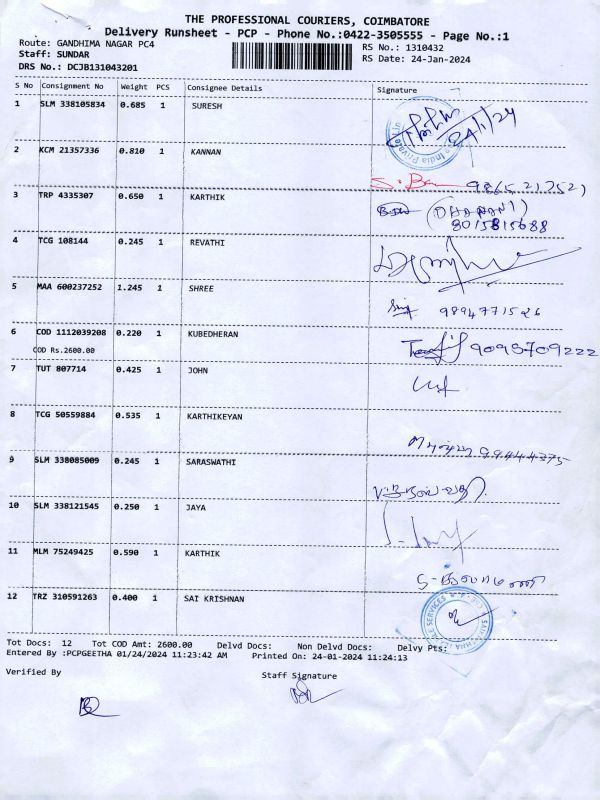 THE PROFESSIONAL COURIERS, COIMBATORE
Delivery Runsheet - PCP - Phone No.:0422-3505555 - Page No.:1
Route: GANDHIMA NAGAR PC4
RS No.: 1310432
Staff: SUNDAR
RS Date: 24-Jan-2024
DRS No.: DCJB131043201
S No Consignment No Weight PCS Consignee Details Signature
1 SLM 338105834 0.685 1 SURESH
24/1/24
2 KCM 21357336 0.810 1 KANNAN
9865217521
3 TRP 4335307 0.650 1 KARTHIK
(DHARANI)
8015815688
4 TCG 108144 0.245 1 REVATHI
5 MAA 600237252 1.245 1 SHREE
9894771526
6 COD 1112039208 0.220 1 KUBEDHERAN
COD Rs.2600.00
9095709222
7 TUT 807714 0.425 1 JOHN
8 TCG 50559884 0.535 1 KARTHIKEYAN
9 SLM 338085009 0.245 1 SARASWATHI
10 SLM 338121545 0.250 1 JAYA
11 MLM 75249425 0.590 1 KARTHIK
12 TRZ 310591263 0.400 1 SAI KRISHNAN
Tot Docs: 12 Tot COD Amt: 2600.00 Delvd Docs: Non Delvd Docs: Delvy Pts:
Entered By :PCPGEETHA 01/24/2024 11:23:42 AM Printed On: 24-01-2024 11:24:13
Verified By
Staff Signature